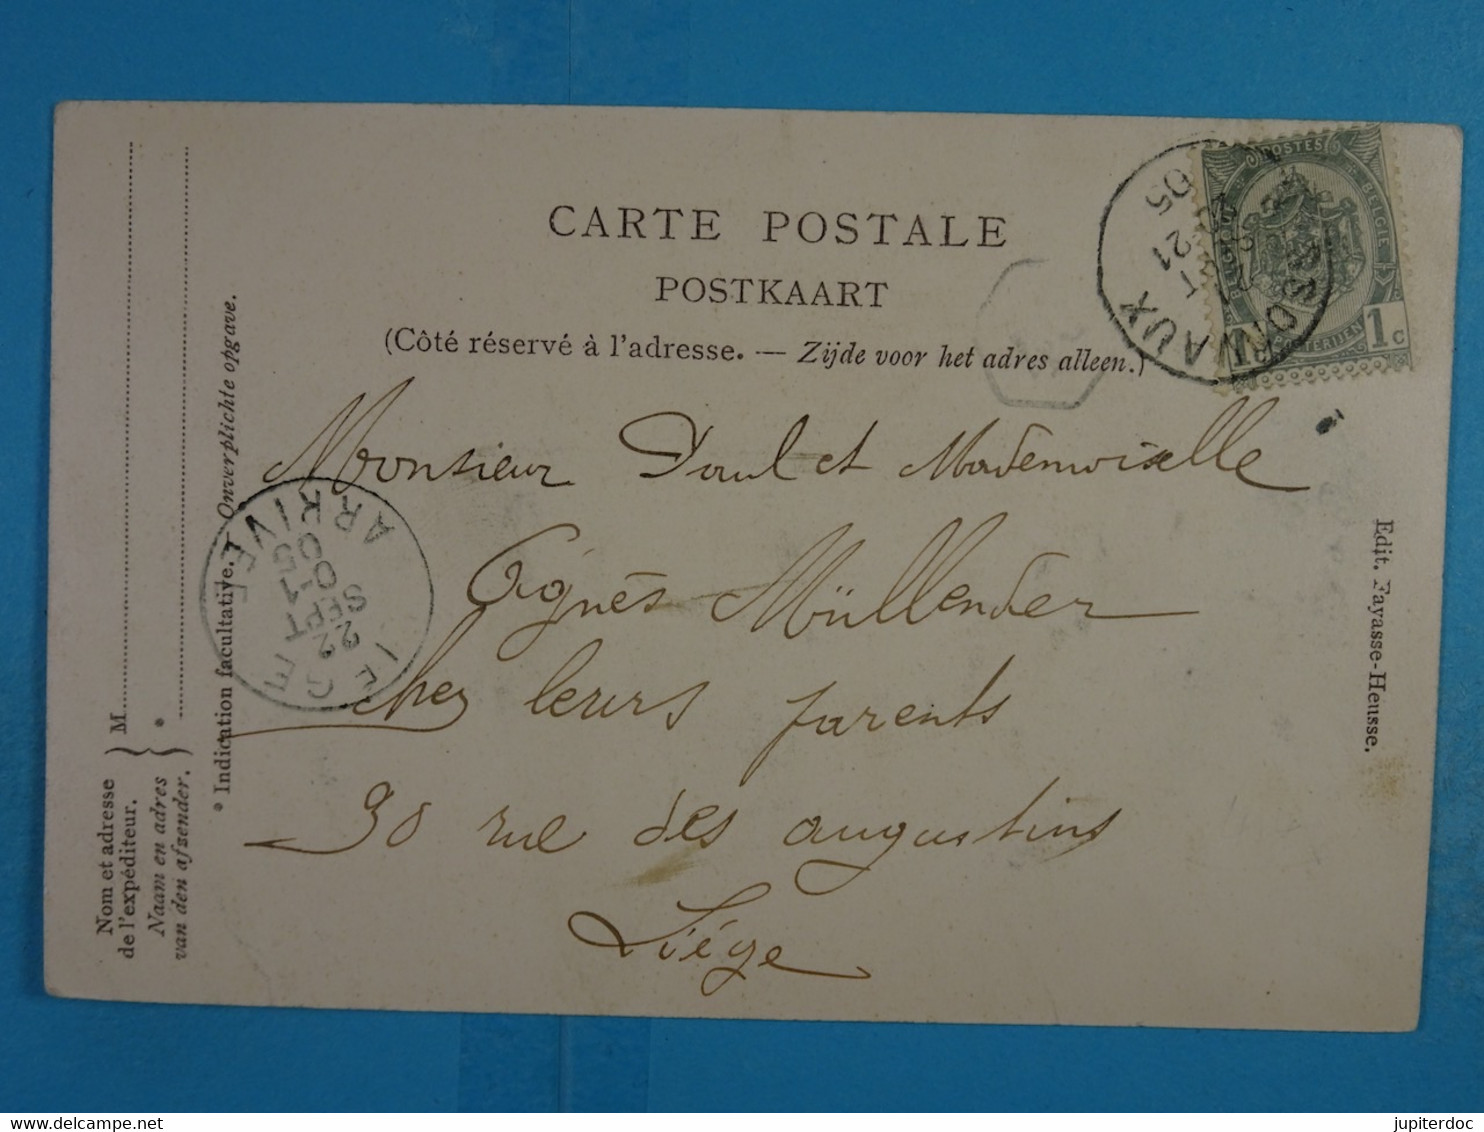 CARTE POSTALE
POSTKAART
(Côté réservé à l'adresse. — Zijde voor het adres alleen.)
Monsieur Paul et Mademoiselle
Agnès Müllender
Chez leurs parents
30 rue des augustins
Liége
Nom et adresse
de l'expéditeur.
Naam en adres
van den afzender.
M
*
* Indication facultative. Onverplichte opgave.
Edit. Fayasse-Heusse.
POSTES
BELGIE
1c
21
05
LIEGE
ARRIVEE
22
SEPT
15
05
jupiterdoc